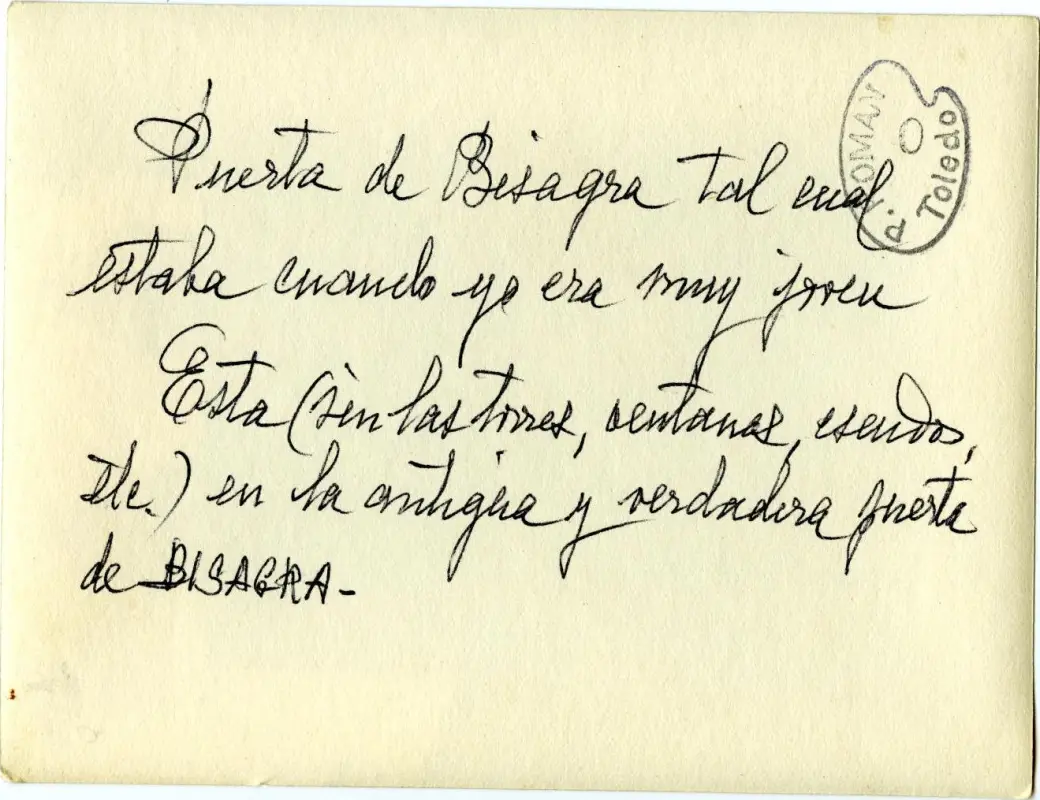 Puerta de Bisagra tal cual
estaba cuando yo era muy joven
Esta (sin las torres, ventanas, escudos,
etc.) en la antigua y verdadera puerta
de BISAGRA-
ROMAN
d. Toledo